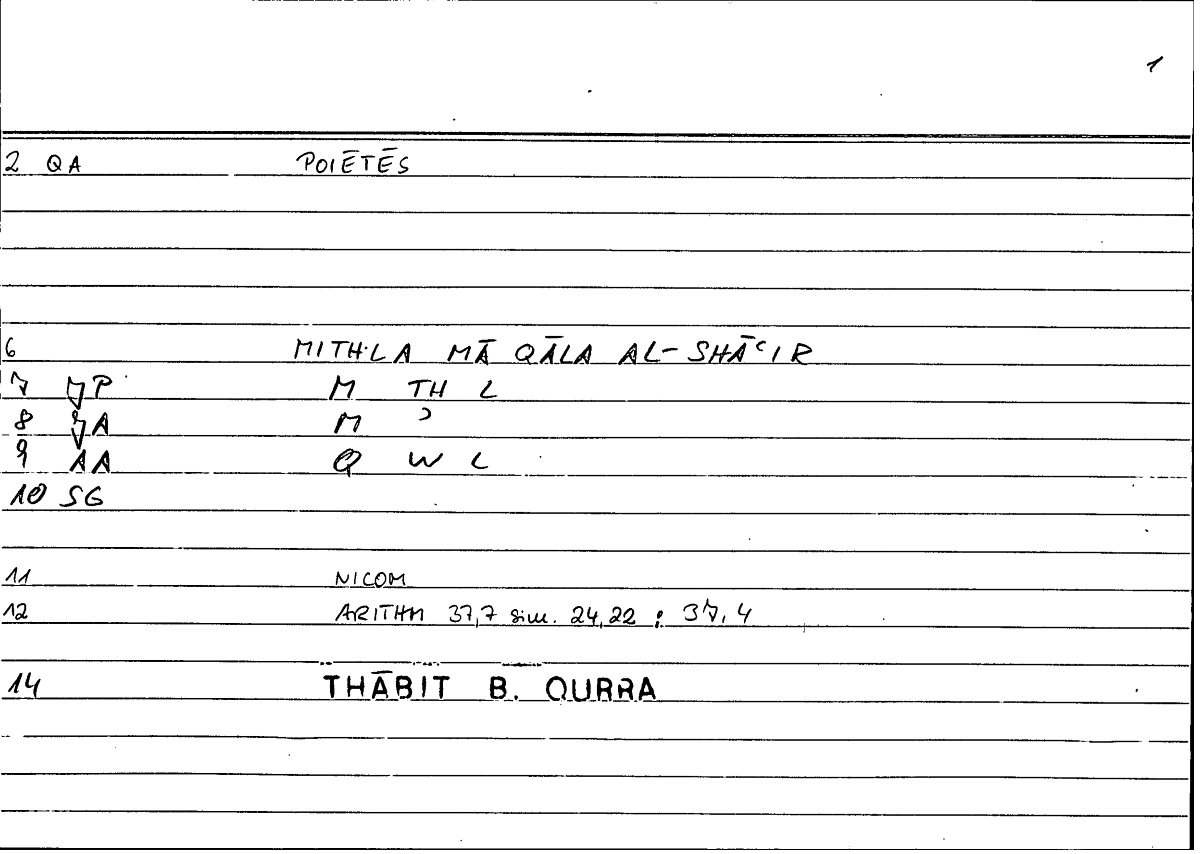 1
2 QA POIĒTĒS
6 MITHLA MĀ QĀLA AL-SHĀʿIR
7 P M TH L
8 A M ʾ
9 AA Q W L
10 SG
11 NICOM
12 ARITHM 37,7 sim. 24,22 ; 37,4
14 THĀBIT B. QURRA